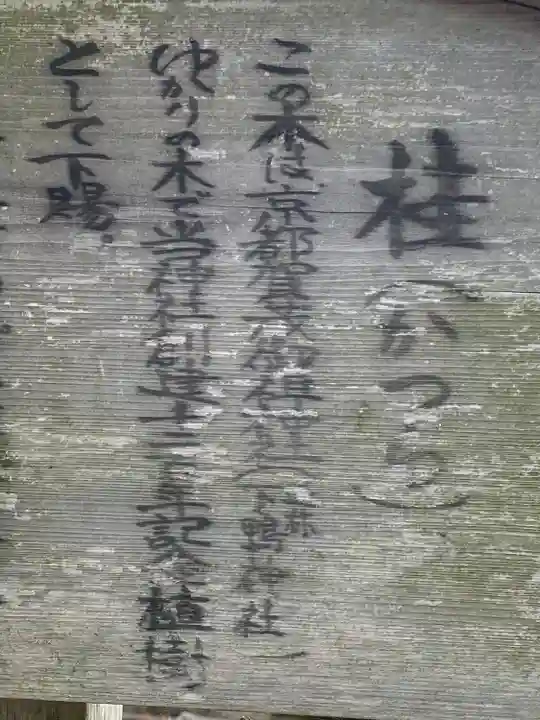 桂(かつら)
この木は京都賀茂御祖神社(下鴨神社)
ゆかりの木で当神社創建千二百年記念植樹
として下賜.